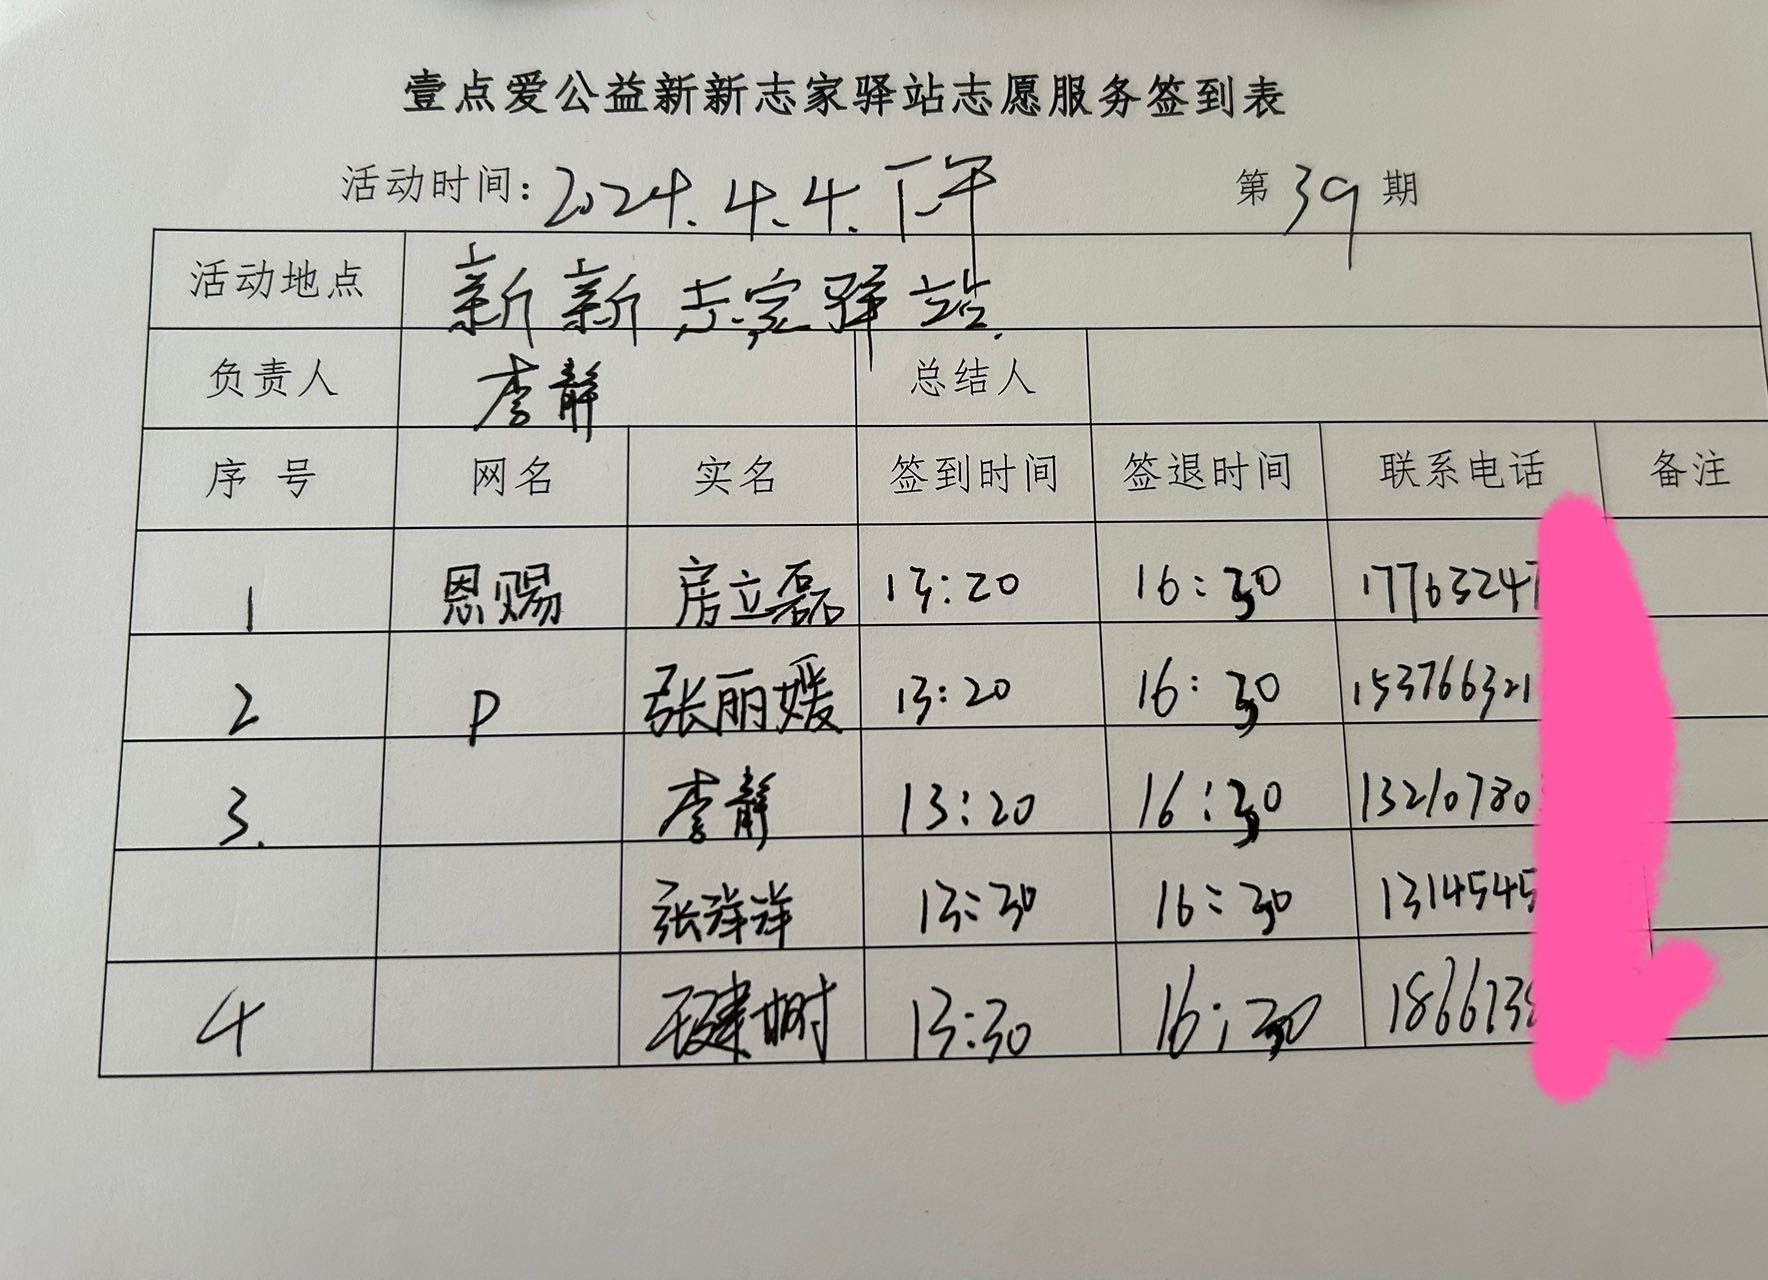 壹点爱公益新新志家驿站志愿服务签到表
活动时间：2024.4.4.下午 第39期
活动地点 新新志家驿站
负责人 李静 总结人
序号 网名 实名 签到时间 签退时间 联系电话 备注
1 恩赐 房立磊 13:20 16:30 17763247
2 P 张丽媛 13:20 16:30 153766321
3. 李静 13:20 16:30 132107803
张洋洋 13:30 16:30 1314545
4 王建树 13:30 16:30 1866738